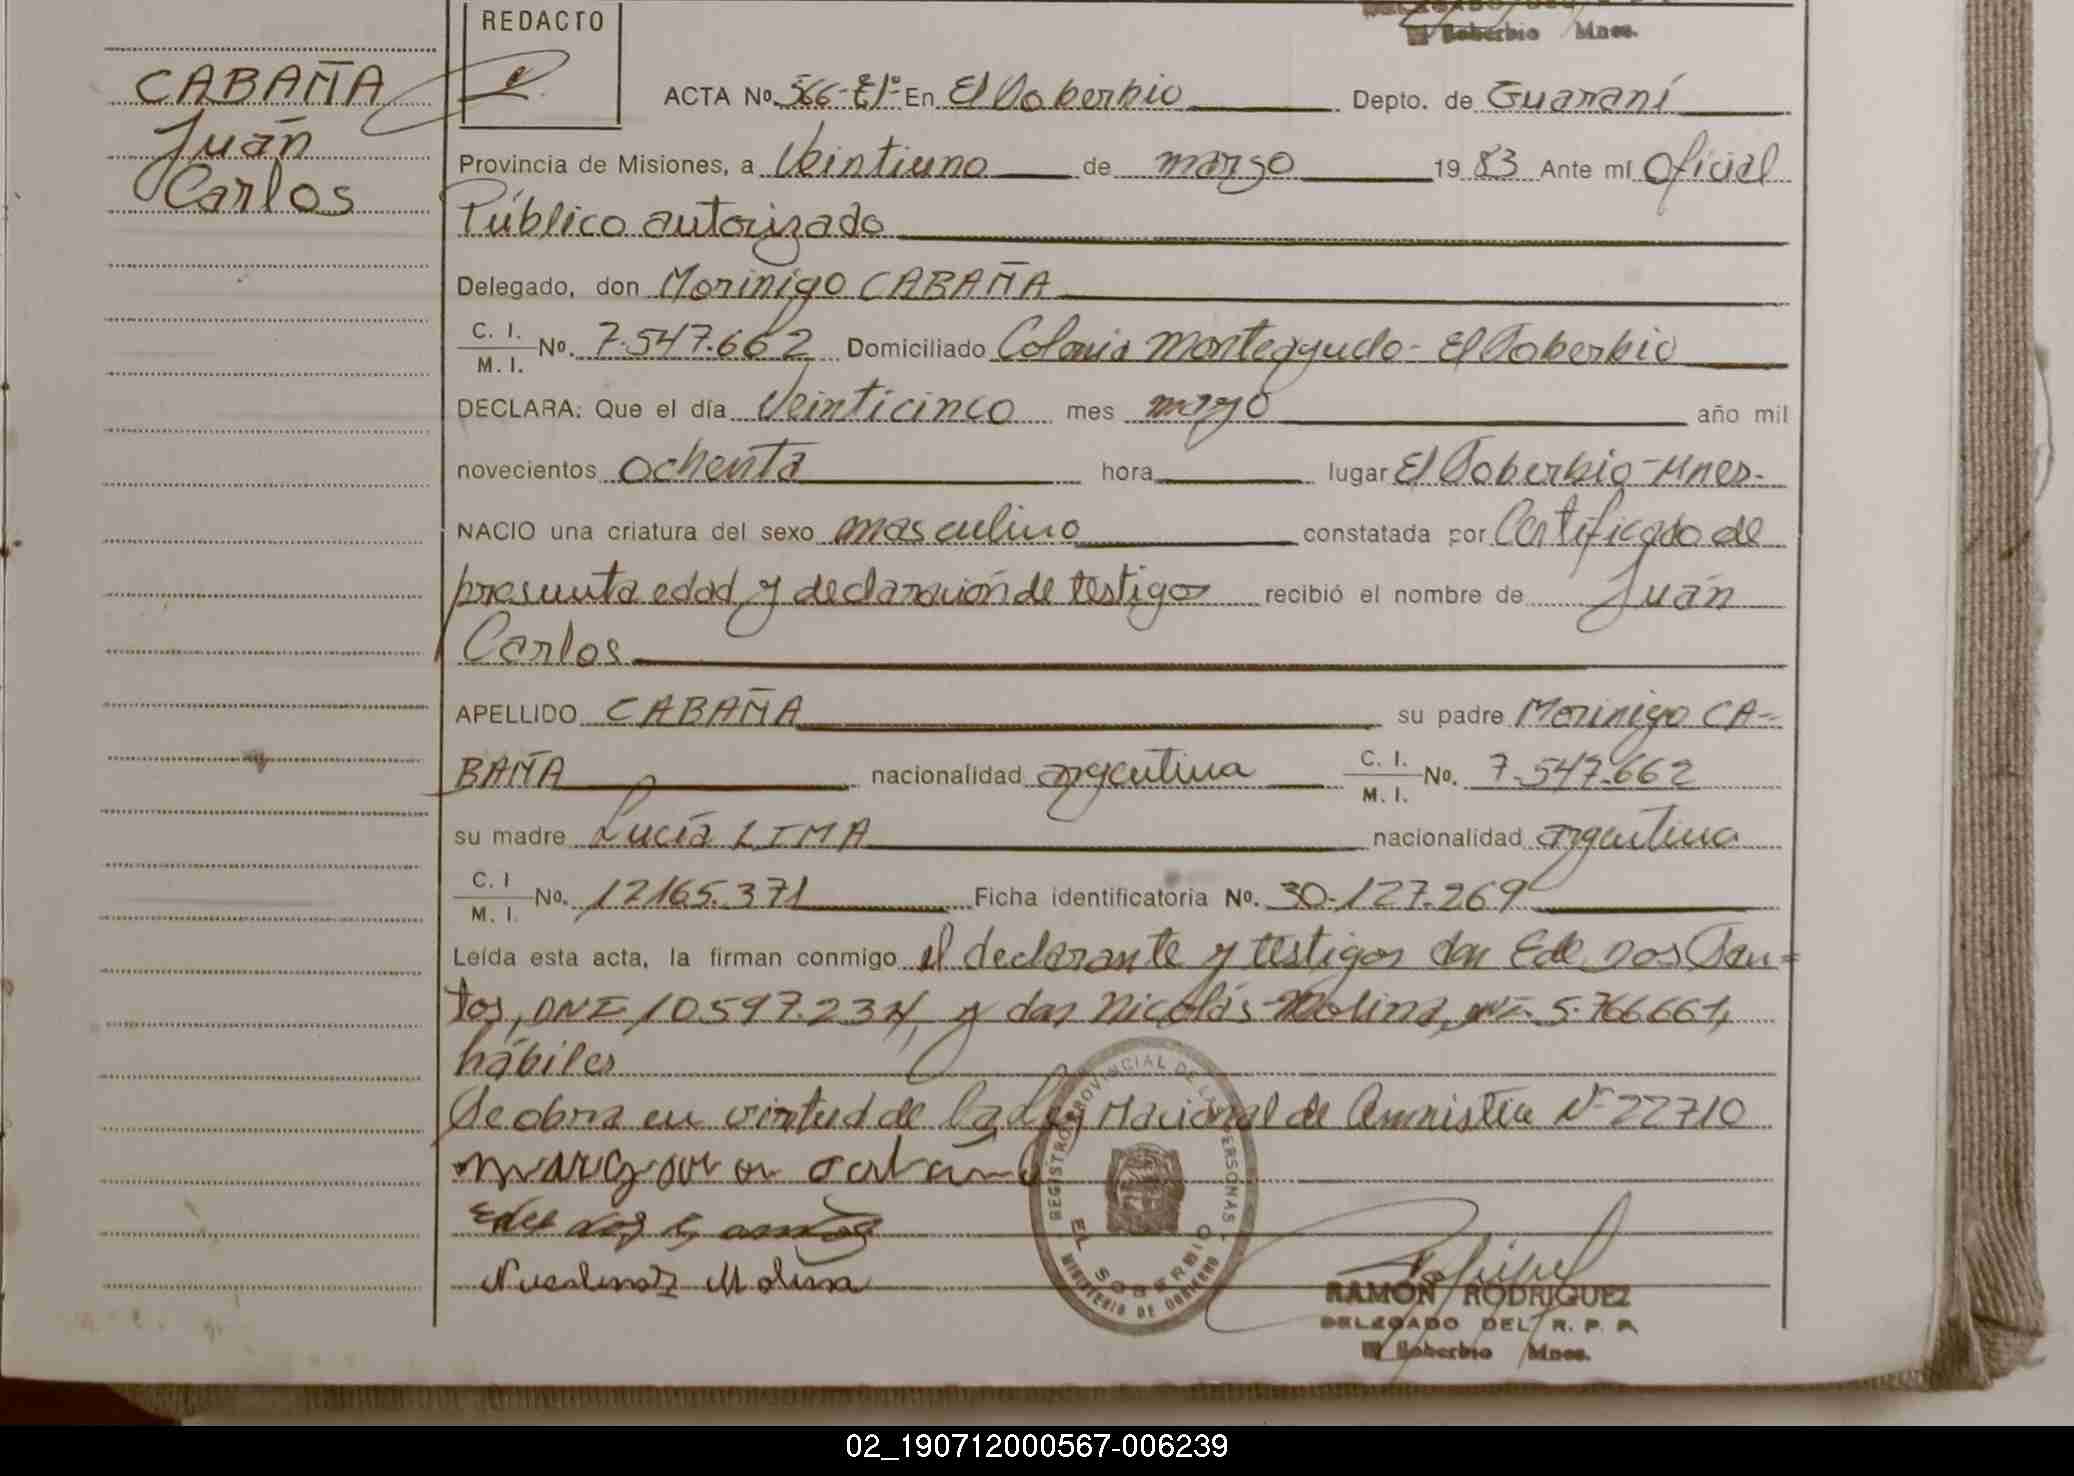 Soberbio Mnes.
REDACTO
CABAÑA
Juán
Carlos
ACTA No. 566-Tº 1º En El Soberbio Depto. de Guaraní
Provincia de Misiones, a Veintiuno de marzo 1983 Ante mí Oficial
Público autorizado
Delegado, don Morinigo CABAÑA
C. I. M. I. No. 7.547.662 Domiciliado Colonia Monteagudo - El Soberbio
DECLARA: Que el día Veinticinco mes mayo año mil
novecientos ochenta hora lugar El Soberbio - Mnes-
NACIO una criatura del sexo masculino constatada por Certificado de
presunta edad y declaración de testigos recibió el nombre de Juán
Carlos
APELLIDO CABAÑA su padre Morinigo CA-
BAÑA nacionalidad argentina C. I. M. I. No. 7.547.662
su madre Lucía LIMA nacionalidad argentina
C. I M. I. No. 12165.371 Ficha identificatoria No. 30.127.269
Leída esta acta, la firman conmigo el declarante y testigos don Ede Dos San-
tos, DNI 10597.234, y don Nicolás Molina, 5.766661,
hábiles
Se obra en virtud de la Ley Nacional de Amnistía Nº 22710
REGISTRO PROVINCIAL DE LAS PERSONAS
EL SOBERBIO
MINISTERIO DE GOBIERNO
Molina
RAMON RODRIGUEZ
DELEGADO DEL R. P. P.
El Soberbio Mnes.
02_190712000567-006239